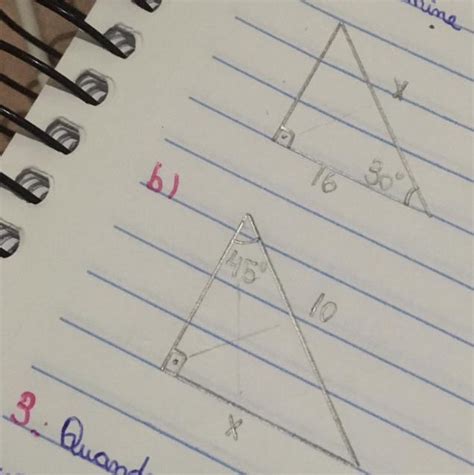 x
16
30°
b)
45°
10
x
3. Quand